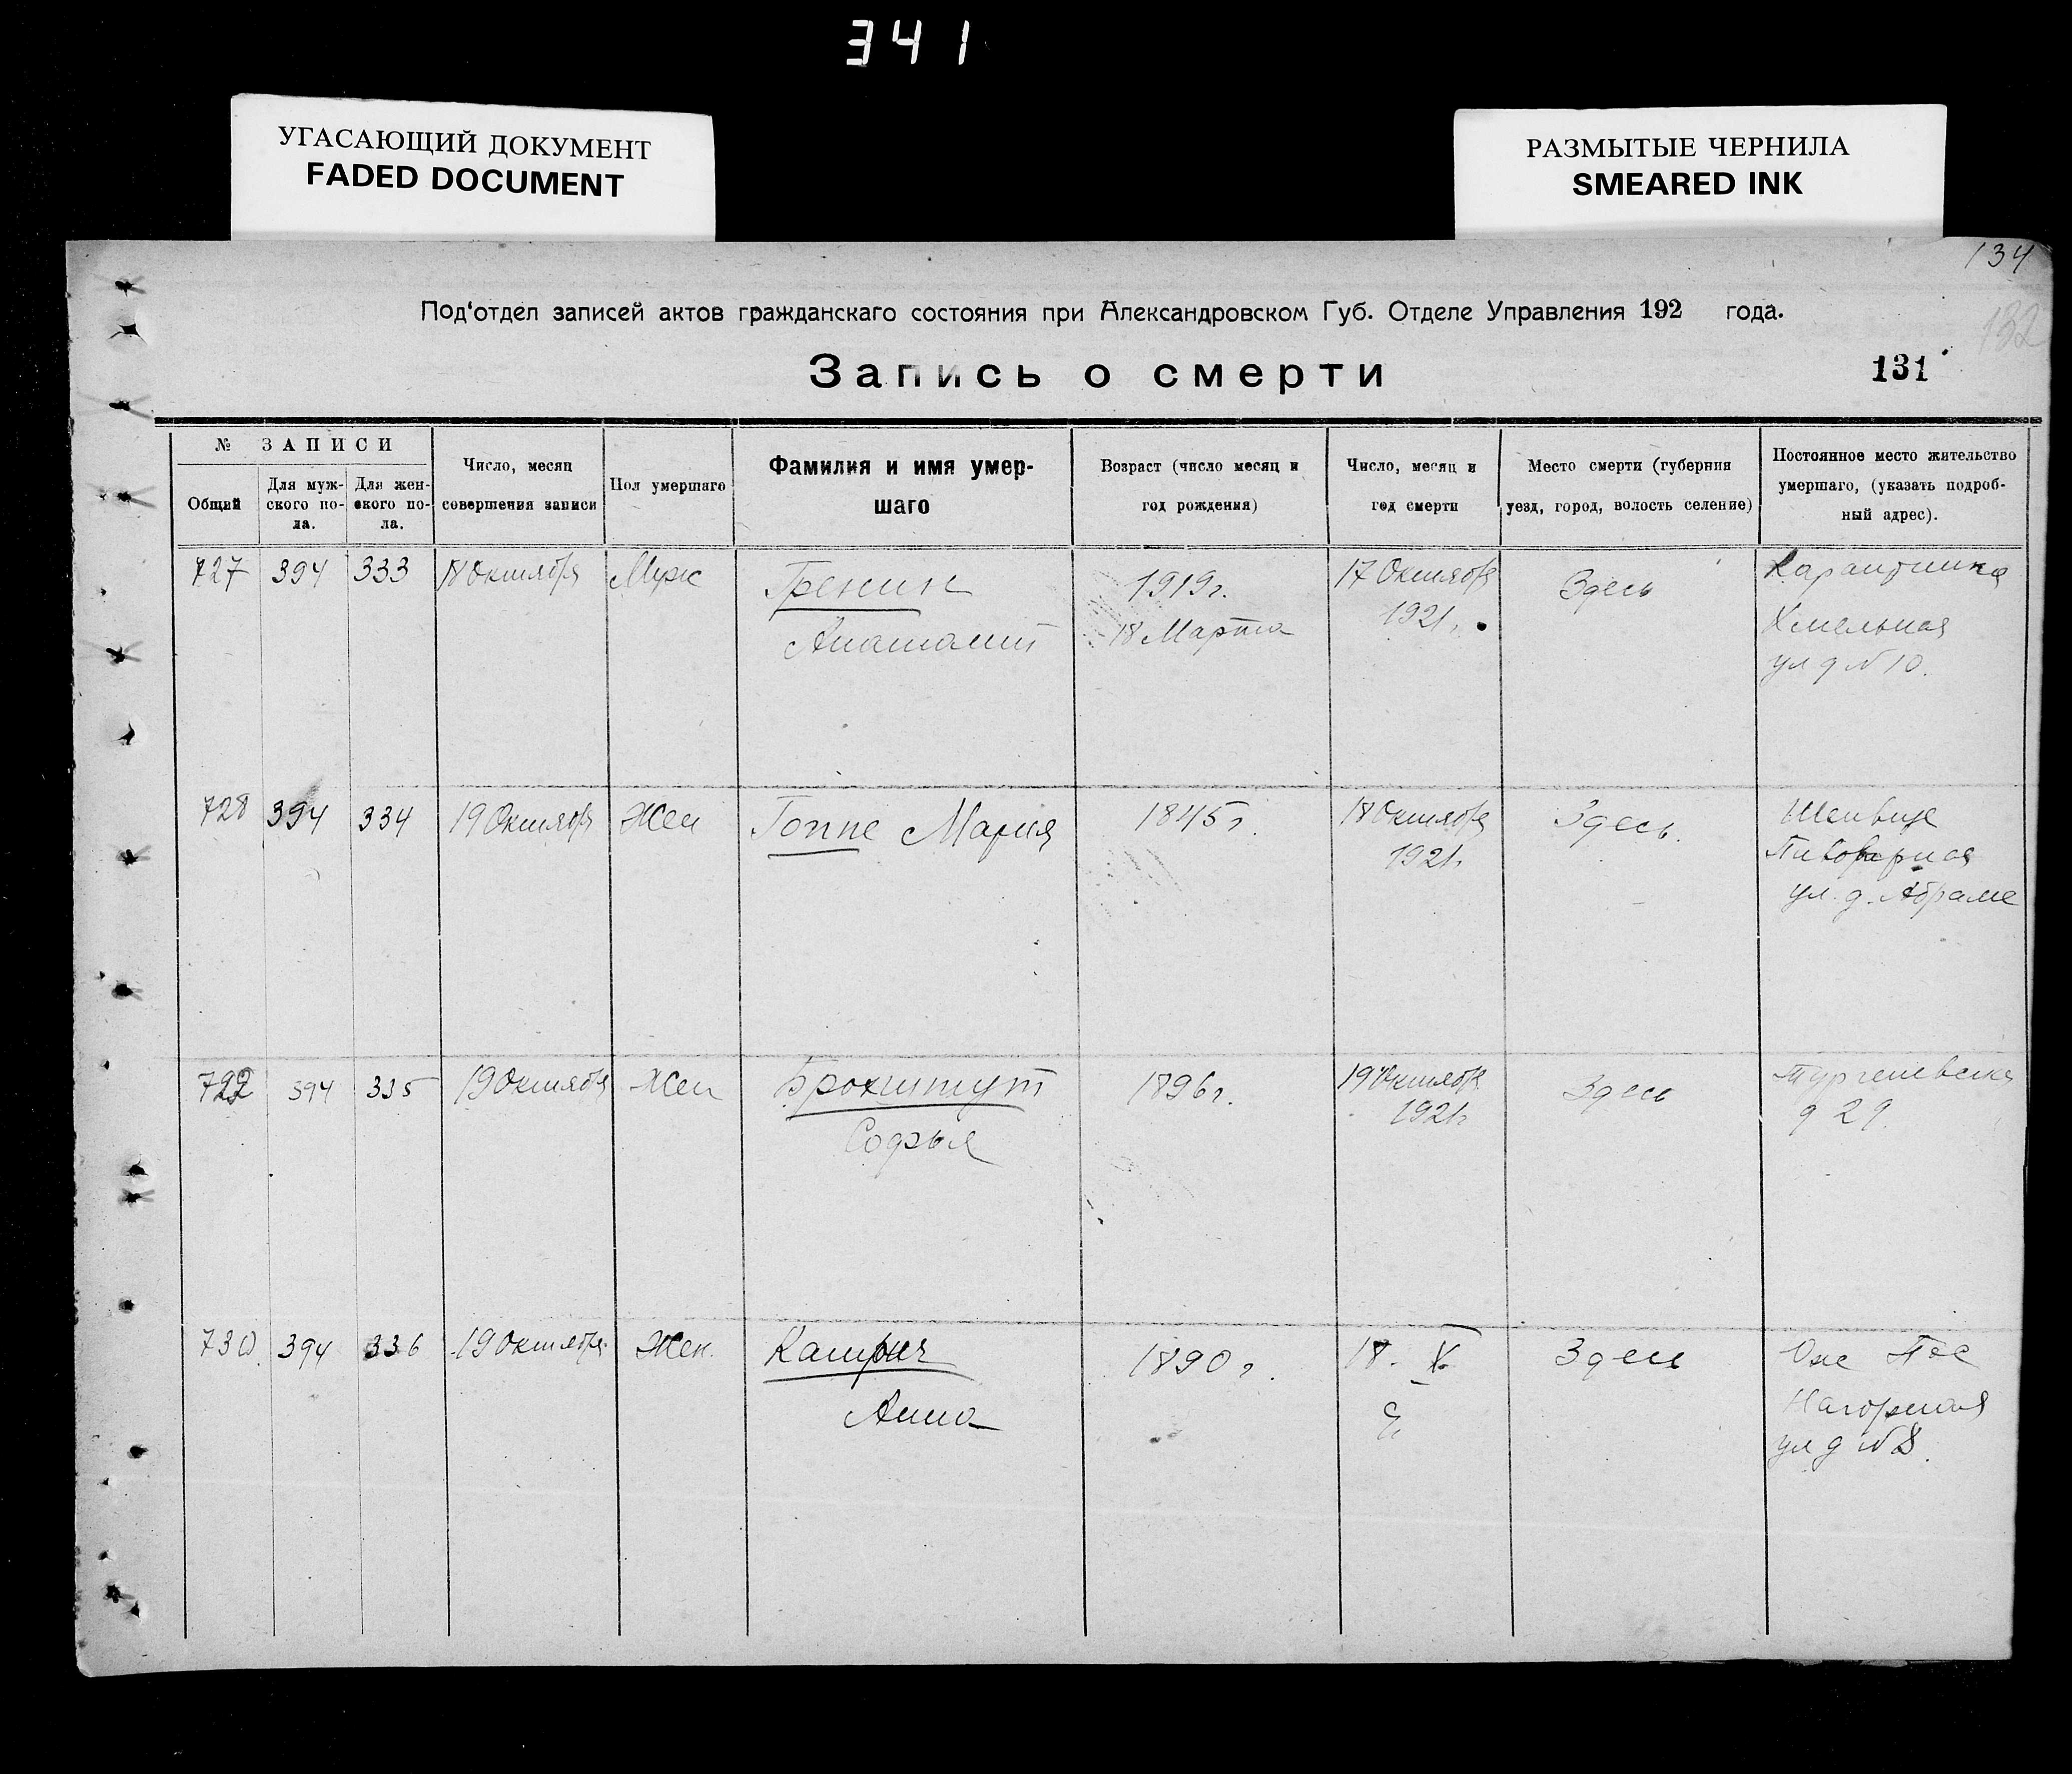 341
УГАСАЮЩИЙ ДОКУМЕНТ
FADED DOCUMENT
РАЗМЫТЫЕ ЧЕРНИЛА
SMEARED INK
134
132
Под'отдел записей актов гражданскаго состояния при Александровском Губ. Отделе Управления 192 года.
Запись о смерти
131
№ ЗАПИСИ
Общий
Для муж-
ского по-
ла.
Для жен-
ского по-
ла.
Число, месяц
совершения записи
Пол умершаго
Фамилия и имя умер-
шаго
Возраст (число месяц и
год рождения)
Число, месяц и
год смерти
Место смерти (губерния
уезд, город, волость селение)
Постоянное место жительство
умершаго, (указать подроб-
ный адрес).
727 394 333 18 Октября Муж Гренин 1919г. 17 Октября Здесь Карантинка
Анатолий 18 Марта 1921г. Хмельная
ул д № 10.
728 394 334 19 Октября Жен Гоппе Мария 1845г. 18 Октября Здесь.
1921г. Пивоварная
ул. д. Абраме
394 335 19 Октября Жен Брохштут 1896г. 19 Октября Здесь Тургеневская
Софья 1921г д 29.
730 394 336 19 Октября Жен. 1890г. 18. X. Здесь
Анна Нагорная
ул д № 8.